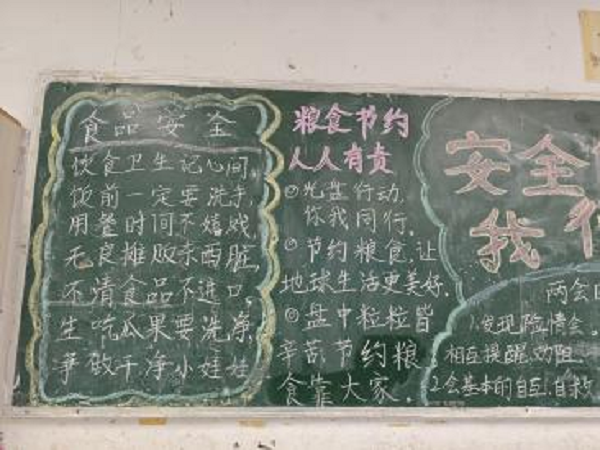 食品安全
饮食卫生记心间,
饭前一定要洗手,
用餐时间不嬉戏,
无良摊贩东西脏,
不清食品不进口。
生吃瓜果要洗净
争做干净小娃娃
粮食节约
人人有责
①光盘行动,
你我同行。
②节约粮食,让
地球生活更美好.
③盘中粒粒皆
辛苦节约粮
食靠大家.
安全
我
两会
1.发现险情会
相互提醒.劝阻
2会基本的自互.自救